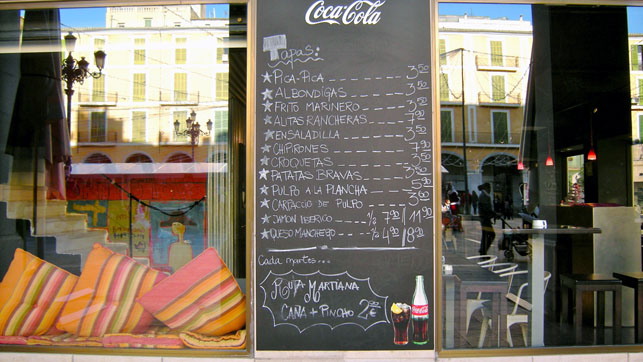 Coca-Cola
Tapas:
PICA-PICA ------ 3.50
ALBONDIGAS ---- 3.50
FRITO MARINERO ---- 3.50
ALITAS RANCHERAS -- 7.90
ENSALADILLA ---- 3.50
CHIPIRONES ------ 7.90
CROQUETAS ------ 3.50
PATATAS BRAVAS --- 3.50
PULPO A LA PLANCHA --- 5.90
CARPACCIO DE PULPO ---- 3.60
JAMON IBERICO - ½ 7.90 / 11.90
QUESO MANCHEGO --- ½ 4.90 / 8.90
Cada martes...
RUTA MARTIANA
CAÑA + PINCHO 2 €